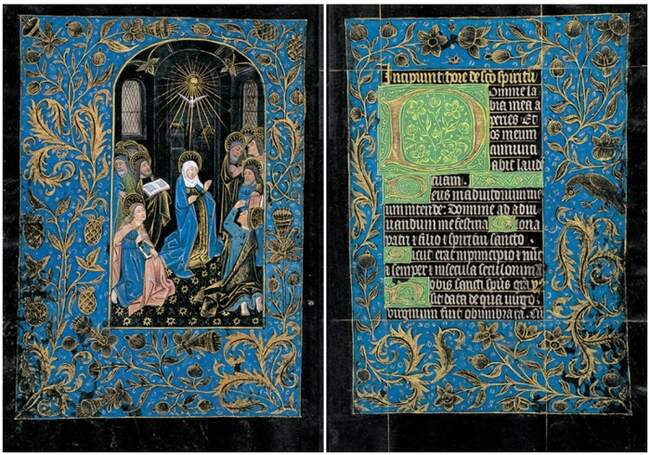 Incipiunt hore de sco spiritu
Domine la
bia mea a
peries Et
os meum
annunti
abit laude
tuam.
Deus in adiutorium m
eum intende: Domine ad adiu
uandum me festina Gloria
patri et filio et spiritui sancto
Sicut erat in principio et nūc
et semper et in secula seculorum
Nobis sancti spūs gra
sit data de qua uirgo
virginum fuit obumbrata